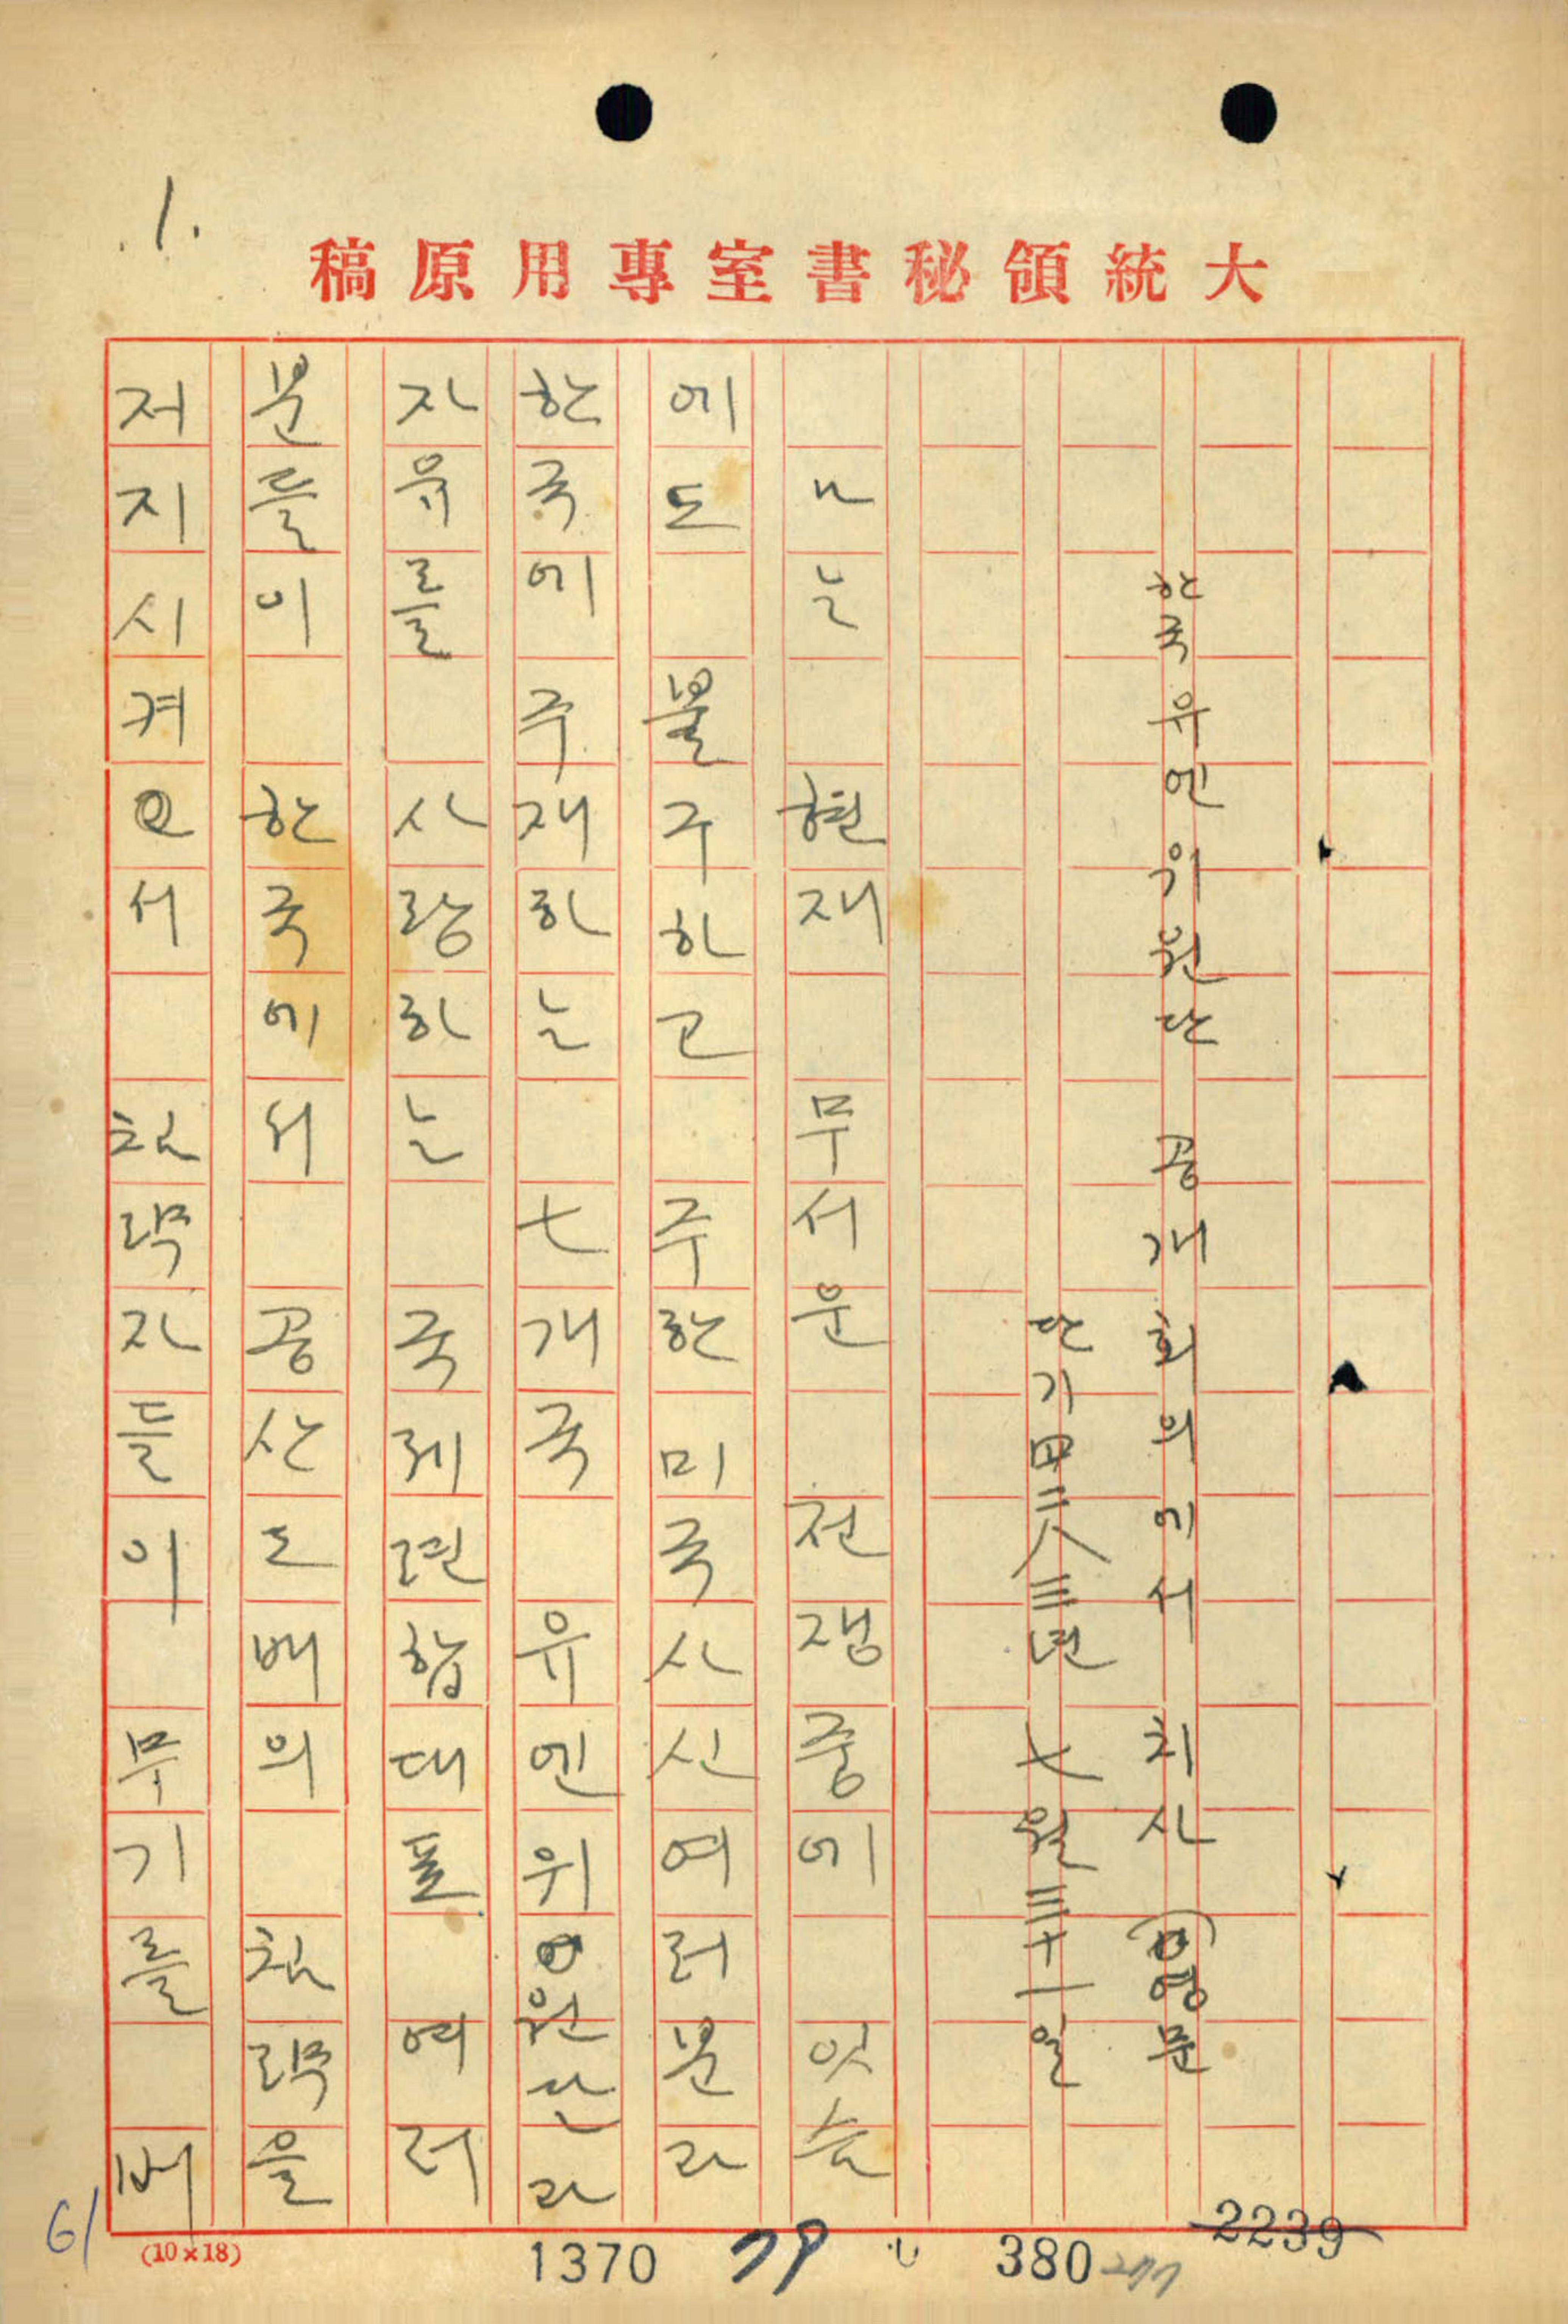 1.
大統領秘書室專用原稿
한국유엔위원단 공개회의에서 치사 (영문
단기四二八三년 七월三十一일
나는 현재 무서운 전쟁중에 잇슴
에도 불구하고 주한미국사신여러분과
한국에 주재하는 七개국 유엔위원단과
자유를 사랑하는 국제련합대표 여러
분들이 한국에서 공산도배의 침략을
저지시켜오서 침략자들이 무기를 버
61
(10×18)
1370
380
2239